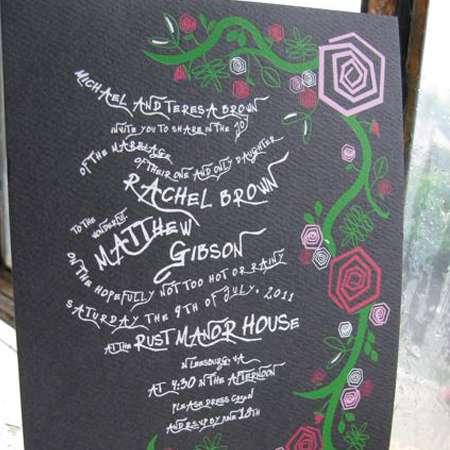 MICHAEL AND TERESA BROWN
INVITE YOU TO SHARE IN THE JOY
OF THE MARRIAGE
OF THEIR ONE AND ONLY DAUGHTER
RACHEL BROWN
TO THE
WONDERFUL
MATTHEW
GIBSON
ON THE HOPEFULLY NOT TOO HOT OR RAINY
SATURDAY THE 9TH OF JULY, 2011
AT THE RUST MANOR HOUSE
IN LEESBURG, VA
AT 4:30 IN THE AFTERNOON
PLEASE DRESS
AND RSVP BY JUNE 18TH